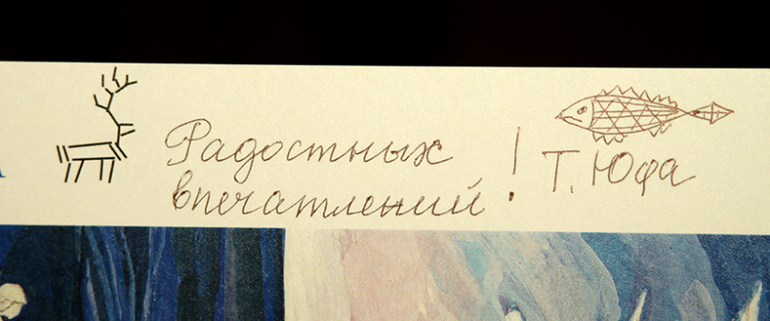 Радостных
впечатлений! Т. Юфа